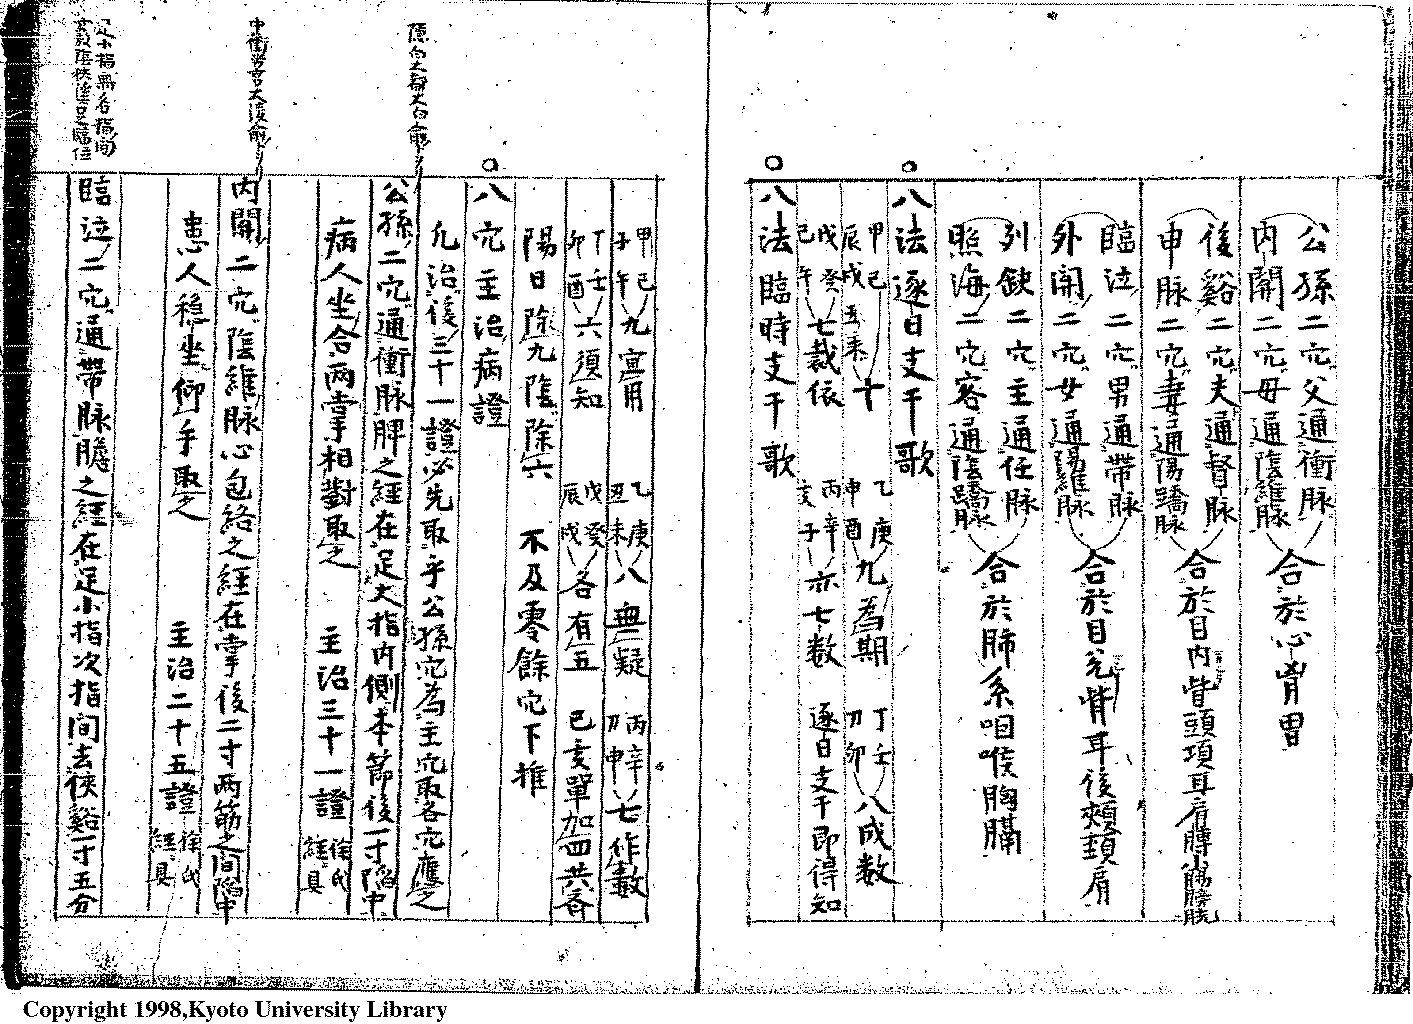 公孫二穴父通衝脉
内関二穴母通陰維脉
合於心胷胃
後谿二穴夫通督脉
申脉二穴妻通陽蹻脉
合於目内眥頭項耳肩膊小腸膀胱
臨泣二穴男通帶脉
外関二穴女通陽維脉
合於目兊眥耳後頰頚肩
列缺二穴主通任脉
照海二穴客通陰蹻脉
合於肺系咽喉胸膈
○八法逐日支干歌
甲己辰戌丑未十 乙庚申酉九為期 丁壬刀卯八成数
戊癸巳午七裁依 丙辛亥子亦七数 逐日支干即得知
○八法臨時支干歌
甲己子午九宜用 乙庚丑未八無疑 丙辛刀申七作數
丁壬卯酉六須知 戊癸辰戌各有五 巳亥單加四共斉
陽日除九陰除六 不及零餘穴下推
○八穴主治病證
凢治後三十一證必先取乎公孫穴為主穴取各穴應之
公孫二穴通衝脉脾之経在足大指内側本節後一寸陥中
病人坐合両掌相對取之 主治三十一證 徐氏経具
内関二穴陰維脉心包絡之経在掌後二寸両筋之間陥中
患人穏坐仰手取之 主治二十五證 徐氏経具
臨泣二穴通帶脉膽之経在足小指次指間去俠谿一寸五分
隠白大都大白命門
中衝労宮大陵
足小指無名指間